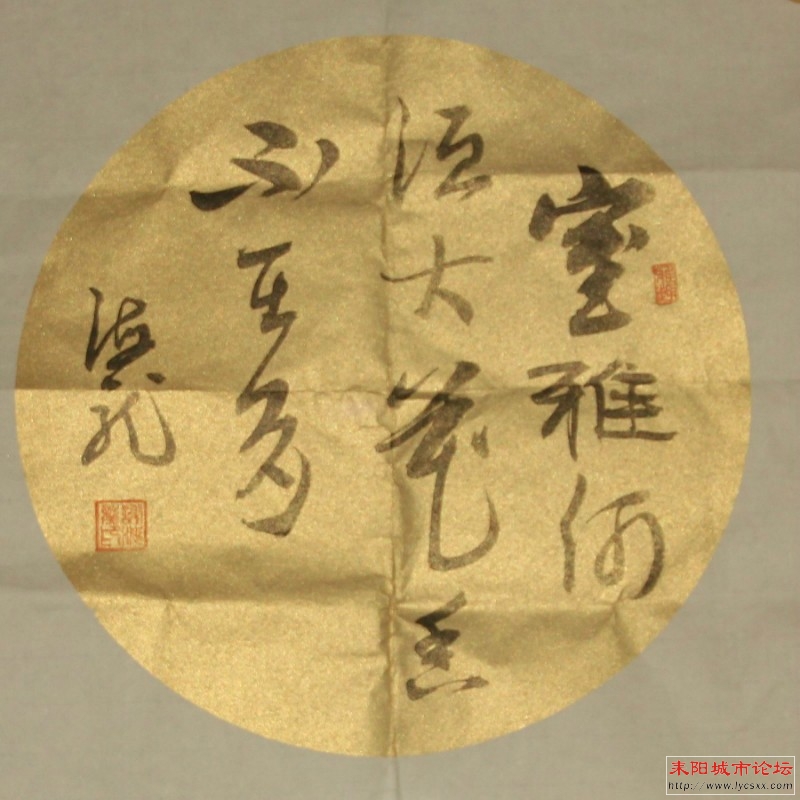 室雅何
須大花香
不在多
耒阳城市论坛
http://www.lycsxx.com